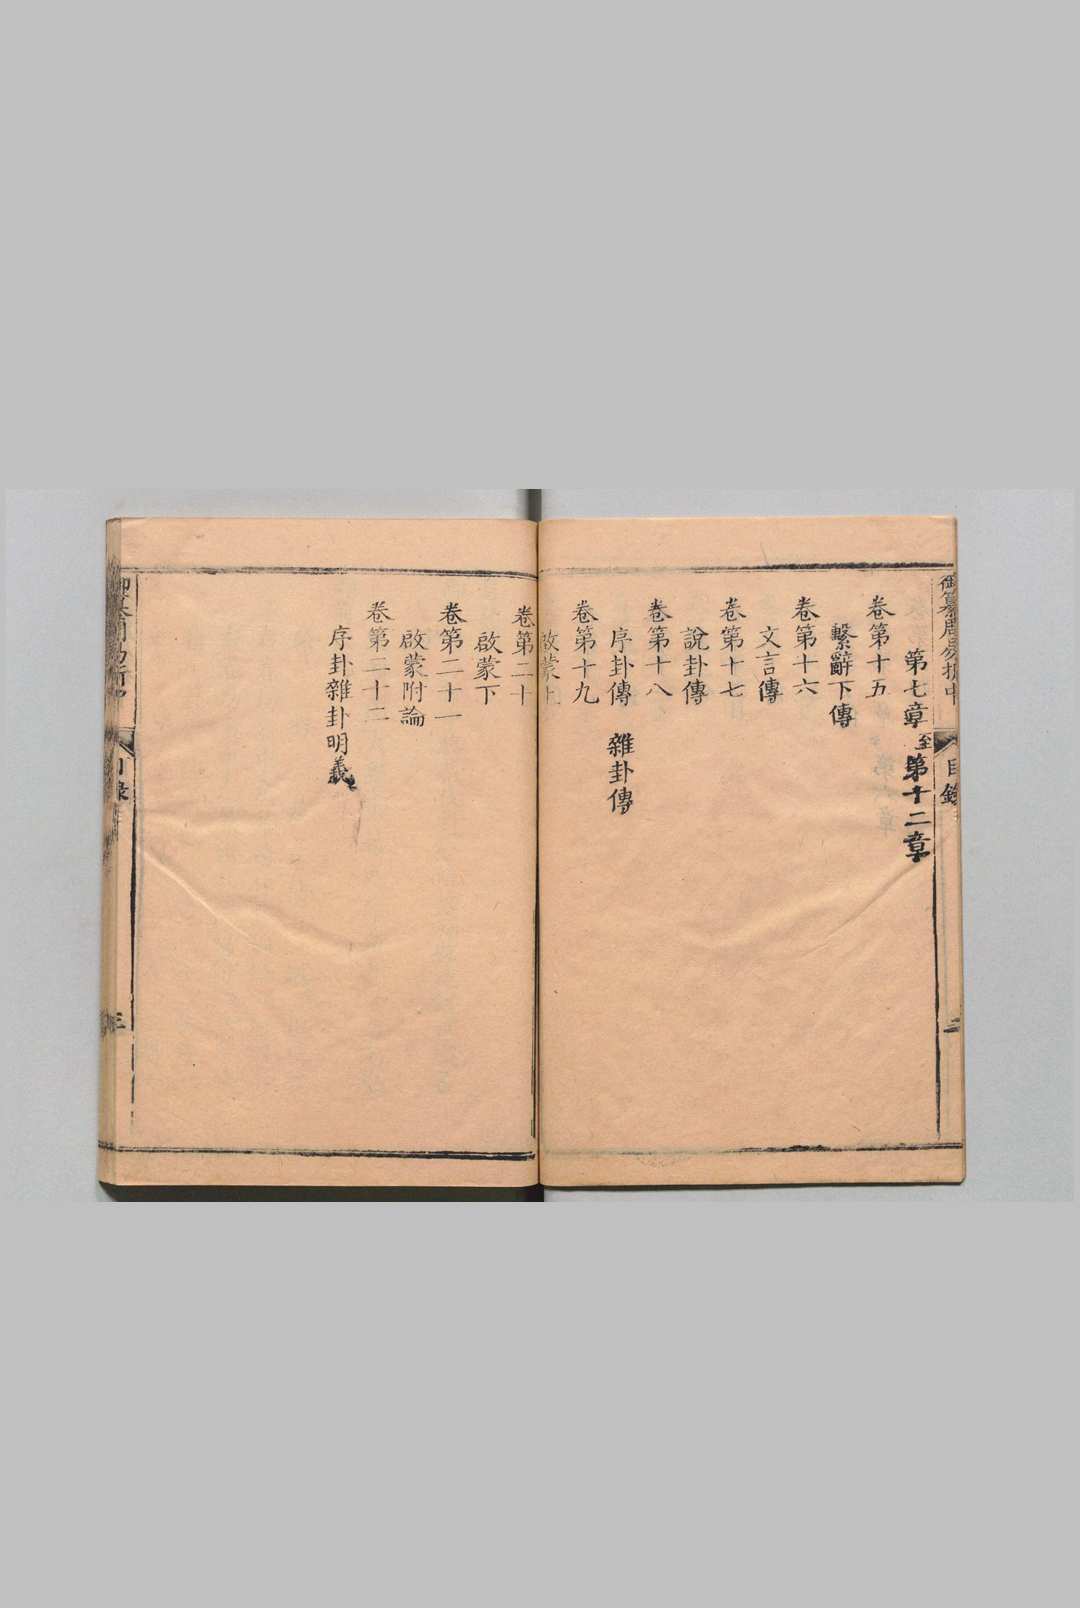 御纂周易折中
目錄
第七章至第十二章
卷第十五
繫辭下傳
卷第十六
文言傳
卷第十七
說卦傳
卷第十八
序卦傳 雜卦傳
卷第十九
啟蒙上
卷第二十
啟蒙下
卷第二十一
啟蒙附論
卷第二十二
序卦雜卦明義
目錄
三